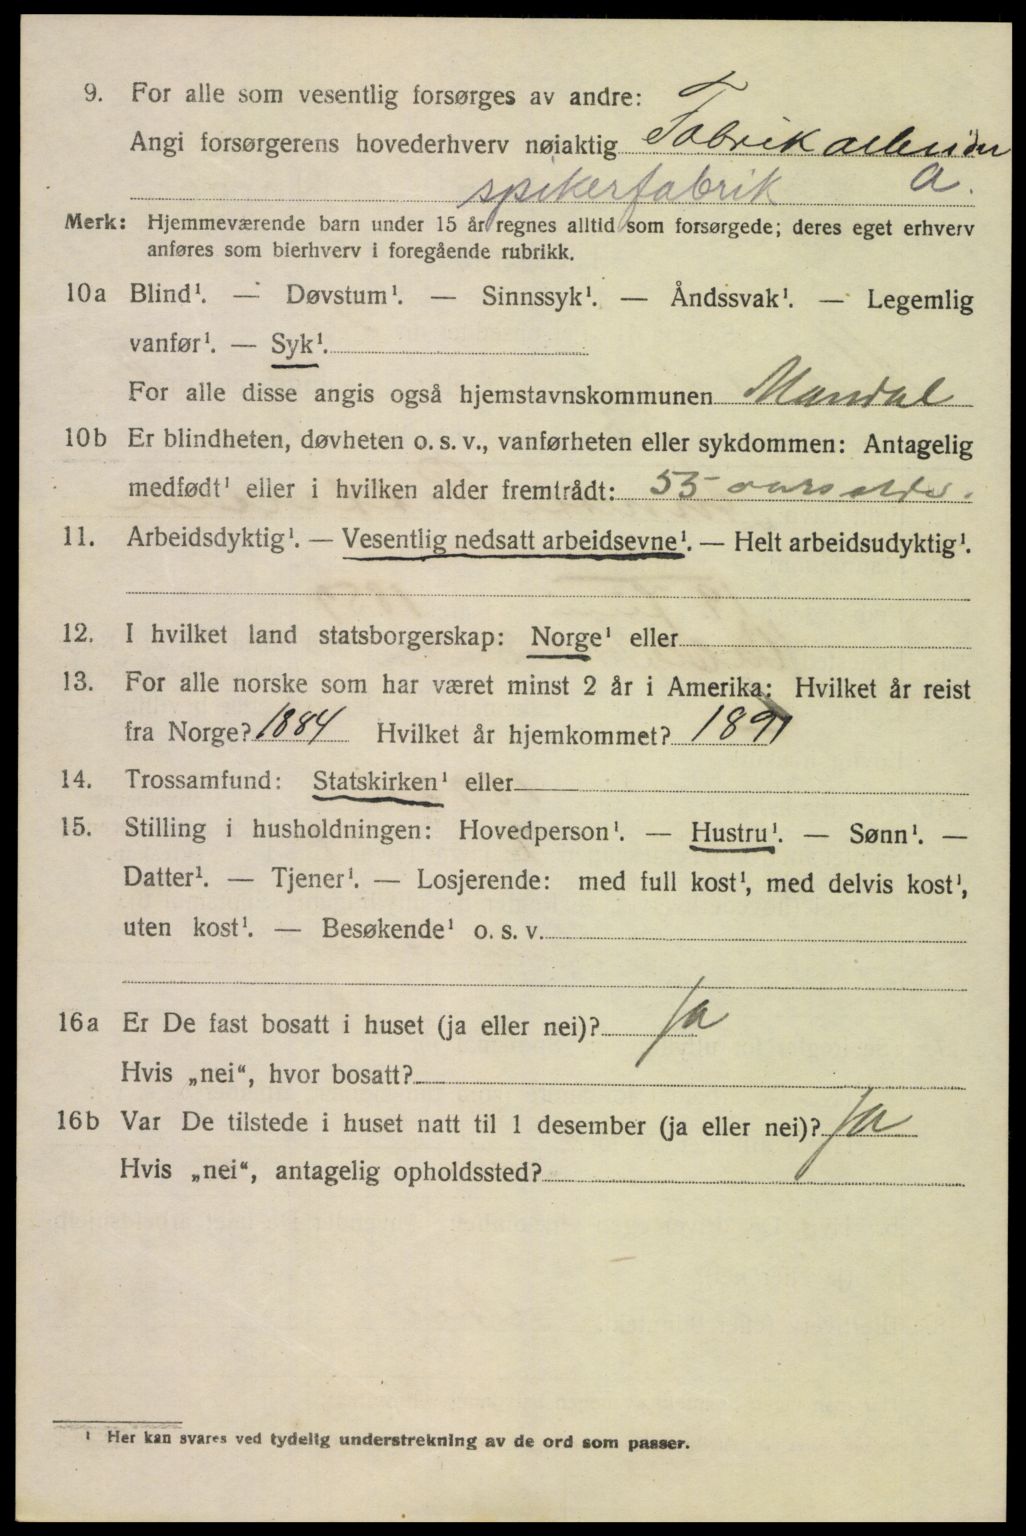 9. For alle som vesentlig forsørges av andre:
Angi forsørgerens hovederhverv nøiaktig Fabrikarbeider
spikerfabrik a.
Merk: Hjemmeværende barn under 15 år regnes alltid som forsørgede; deres eget erhverv
anføres som bierhverv i foregående rubrikk.
10a Blind¹. — Døvstum¹. — Sinnssyk¹. — Åndssvak¹. — Legemlig
vanfør¹. — Syk¹.
For alle disse angis også hjemstavnskommunen Mandal
10b Er blindheten, døvheten o. s. v., vanførheten eller sykdommen: Antagelig
medfødt¹ eller i hvilken alder fremtrådt: 55 aars alder.
11. Arbeidsdyktig¹. — Vesentlig nedsatt arbeidsevne¹. — Helt arbeidsudyktig¹.
12. I hvilket land statsborgerskap: Norge¹ eller
13. For alle norske som har været minst 2 år i Amerika: Hvilket år reist
fra Norge? 1884 Hvilket år hjemkommet? 1891
14. Trossamfund: Statskirken¹ eller
15. Stilling i husholdningen: Hovedperson¹. — Hustru¹. — Sønn¹. —
Datter¹. — Tjener¹. — Losjerende: med full kost¹, med delvis kost¹,
uten kost¹. — Besøkende¹ o. s. v.
16a Er De fast bosatt i huset (ja eller nei)? Ja
Hvis „nei“, hvor bosatt?
16b Var De tilstede i huset natt til 1 desember (ja eller nei)? Ja
Hvis „nei“, antagelig opholdssted?
¹ Her kan svares ved tydelig understrekning av de ord som passer.